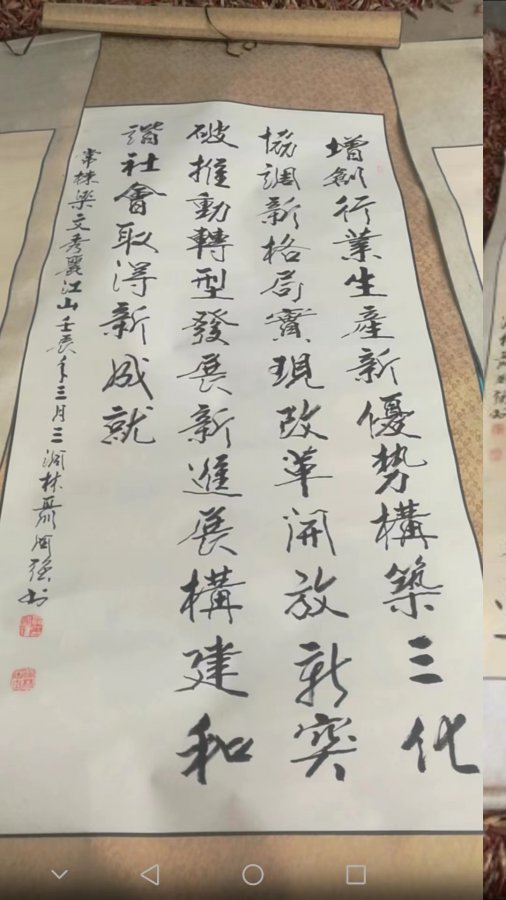 增創行業生產新優勢構築三化
協調新格局實現改革開放新突
破推動轉型發展新進展構建和
諧社會取得新成就
常林梁文秀麗江山壬辰年三月三澗林聶